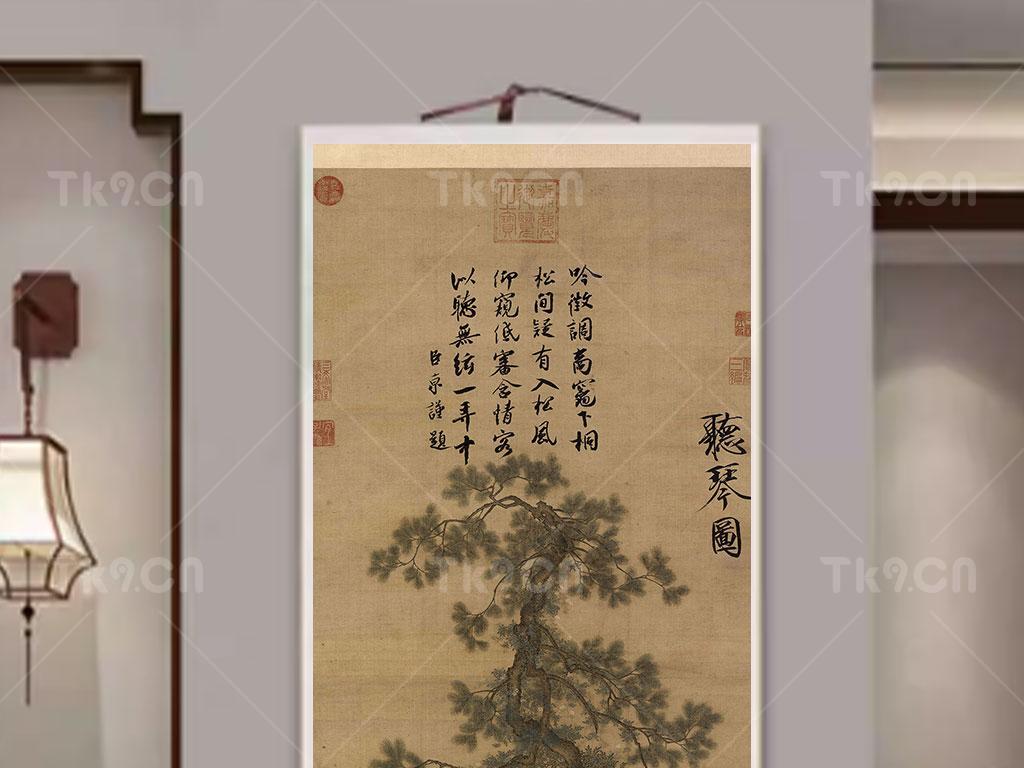 聽琴圖
吟徵調商竈下桐
松間疑有入松風
仰窺低審含情客
以聽無絃一弄中
臣京謹題
Tk9.CN
Tk9.CN
Tk9.CN
Tk9.CN
Tk9.CN
Tk9.CN